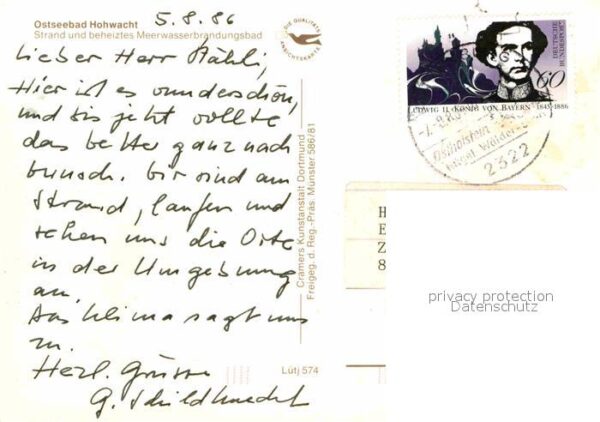 Ostseebad Hohwacht
Strand und beheiztes Meerwasserbrandungsbad
5.8.86
Lieber Herr Stähli,
Hier ist es wunderschön,
und bis jetzt wollte
das Wetter ganz nach
Wunsch. Wir sind am
Strand, laufen und
sehen uns die Orte
in der Umgebung
an.
Das Klima sagt uns
zu.
Herzl. Grüsse
G. Schildknecht
DIE QUALITÄTS
ANSICHTSKARTE
Cramers Kunstanstalt Dortmund
Freigeg. d. Reg.-Präs. Münster 586/81
Lütj 574
DEUTSCHE
BUNDESPOST
60
LUDWIG II. KÖNIG VON BAYERN 1845-1886
Ostholstein
2322
H
E
Z
8
privacy protection
Datenschutz